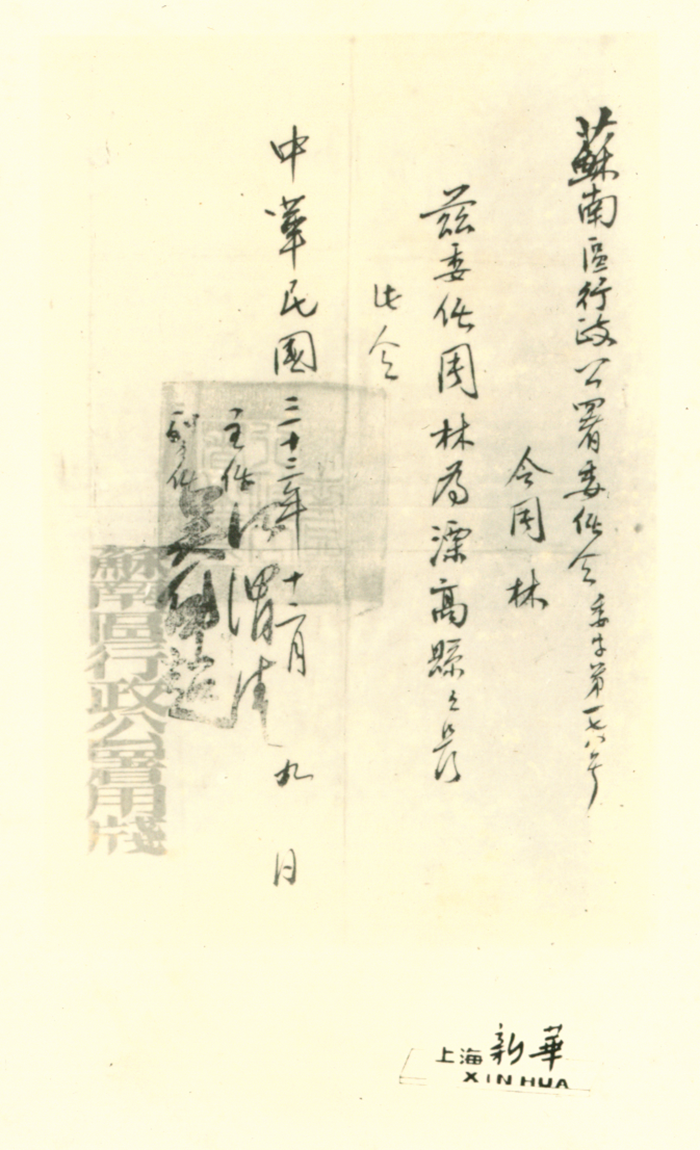 蘇南區行政公署委任令 委字第一七八号
令周林
茲委任周林為溧高縣々長
此令
中華民國三十三年十二月九日
主任 江渭清
副主任 吳仲超
蘇南區行政公署用牋
上海 新華
XIN HUA